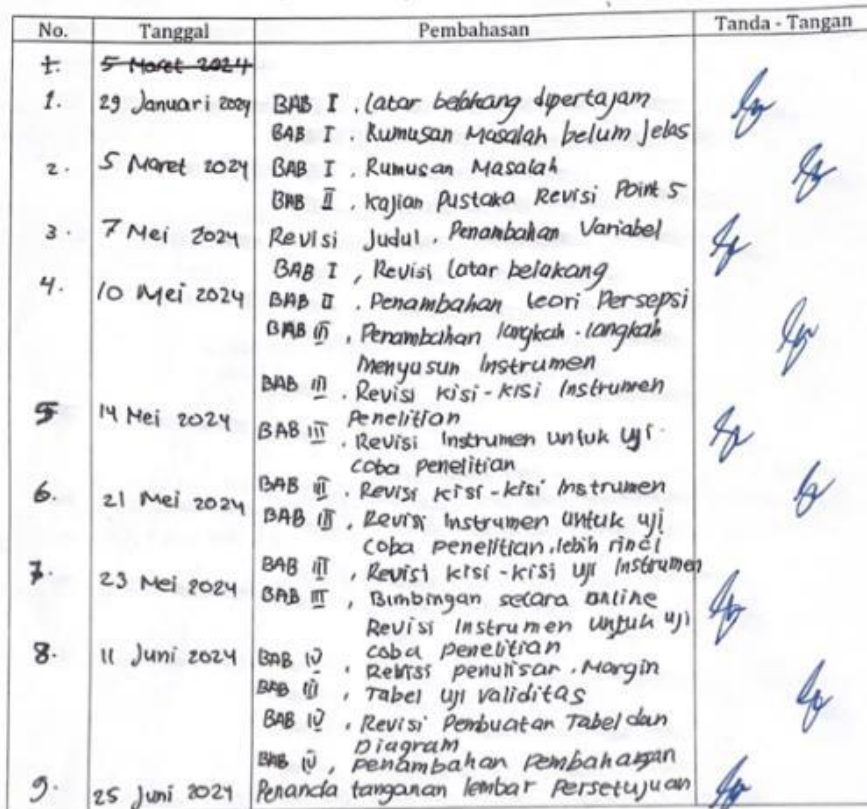 No. Tanggal Pembahasan Tanda - Tangan
1. 5 Maret 2024
1. 29 Januari 2024 BAB I . Latar belakang dipertajam
BAB I . Rumusan Masalah belum jelas
2. 5 Maret 2024 BAB I . Rumusan Masalah
BAB II . Kajian Pustaka Revisi Point 5
3. 7 Mei 2024 Revisi Judul, Penambahan Variabel
BAB I , Revisi Latar belakang
4. 10 Mei 2024 BAB II . Penambahan teori Persepsi
BAB III , Penambahan langkah-langkah
Menyusun Instrumen
BAB III . Revisi kisi-kisi Instrumen
Penelitian
5 14 Mei 2024 BAB III . Revisi Instrumen untuk uji
coba penelitian
6. 21 Mei 2024 BAB III . Revisi kisi-kisi Instrumen
BAB III , Revisi Instrumen untuk uji
coba penelitian, lebih rinci
7. 23 Mei 2024 BAB III , Revisi kisi-kisi uji Instrumen
BAB III , Bimbingan secara online
Revisi Instrumen untuk uji
coba penelitian
8. 11 Juni 2024 BAB IV , Revisi penulisan . Margin
BAB III , Tabel uji validitas
BAB IV , Revisi Pembuatan Tabel dan
Diagram
BAB IV , Penambahan Pembahasan
9. 25 Juni 2024 Penanda tanganan lembar Persetujuan